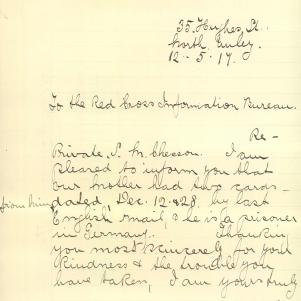 35. Hughes St.
North Unley.
12-5-17.
To the Red Cross Information Bureau.
Re-
Private. S. M. Chesson. I am
pleased to inform you that
our Mother had two cards -
from him dated, Dec. 12 & 28, by last
English mail, & he is a prisoner
in Germany. Thanking
you most sincerely for your
kindness & the trouble you
have taken, I am yours truly